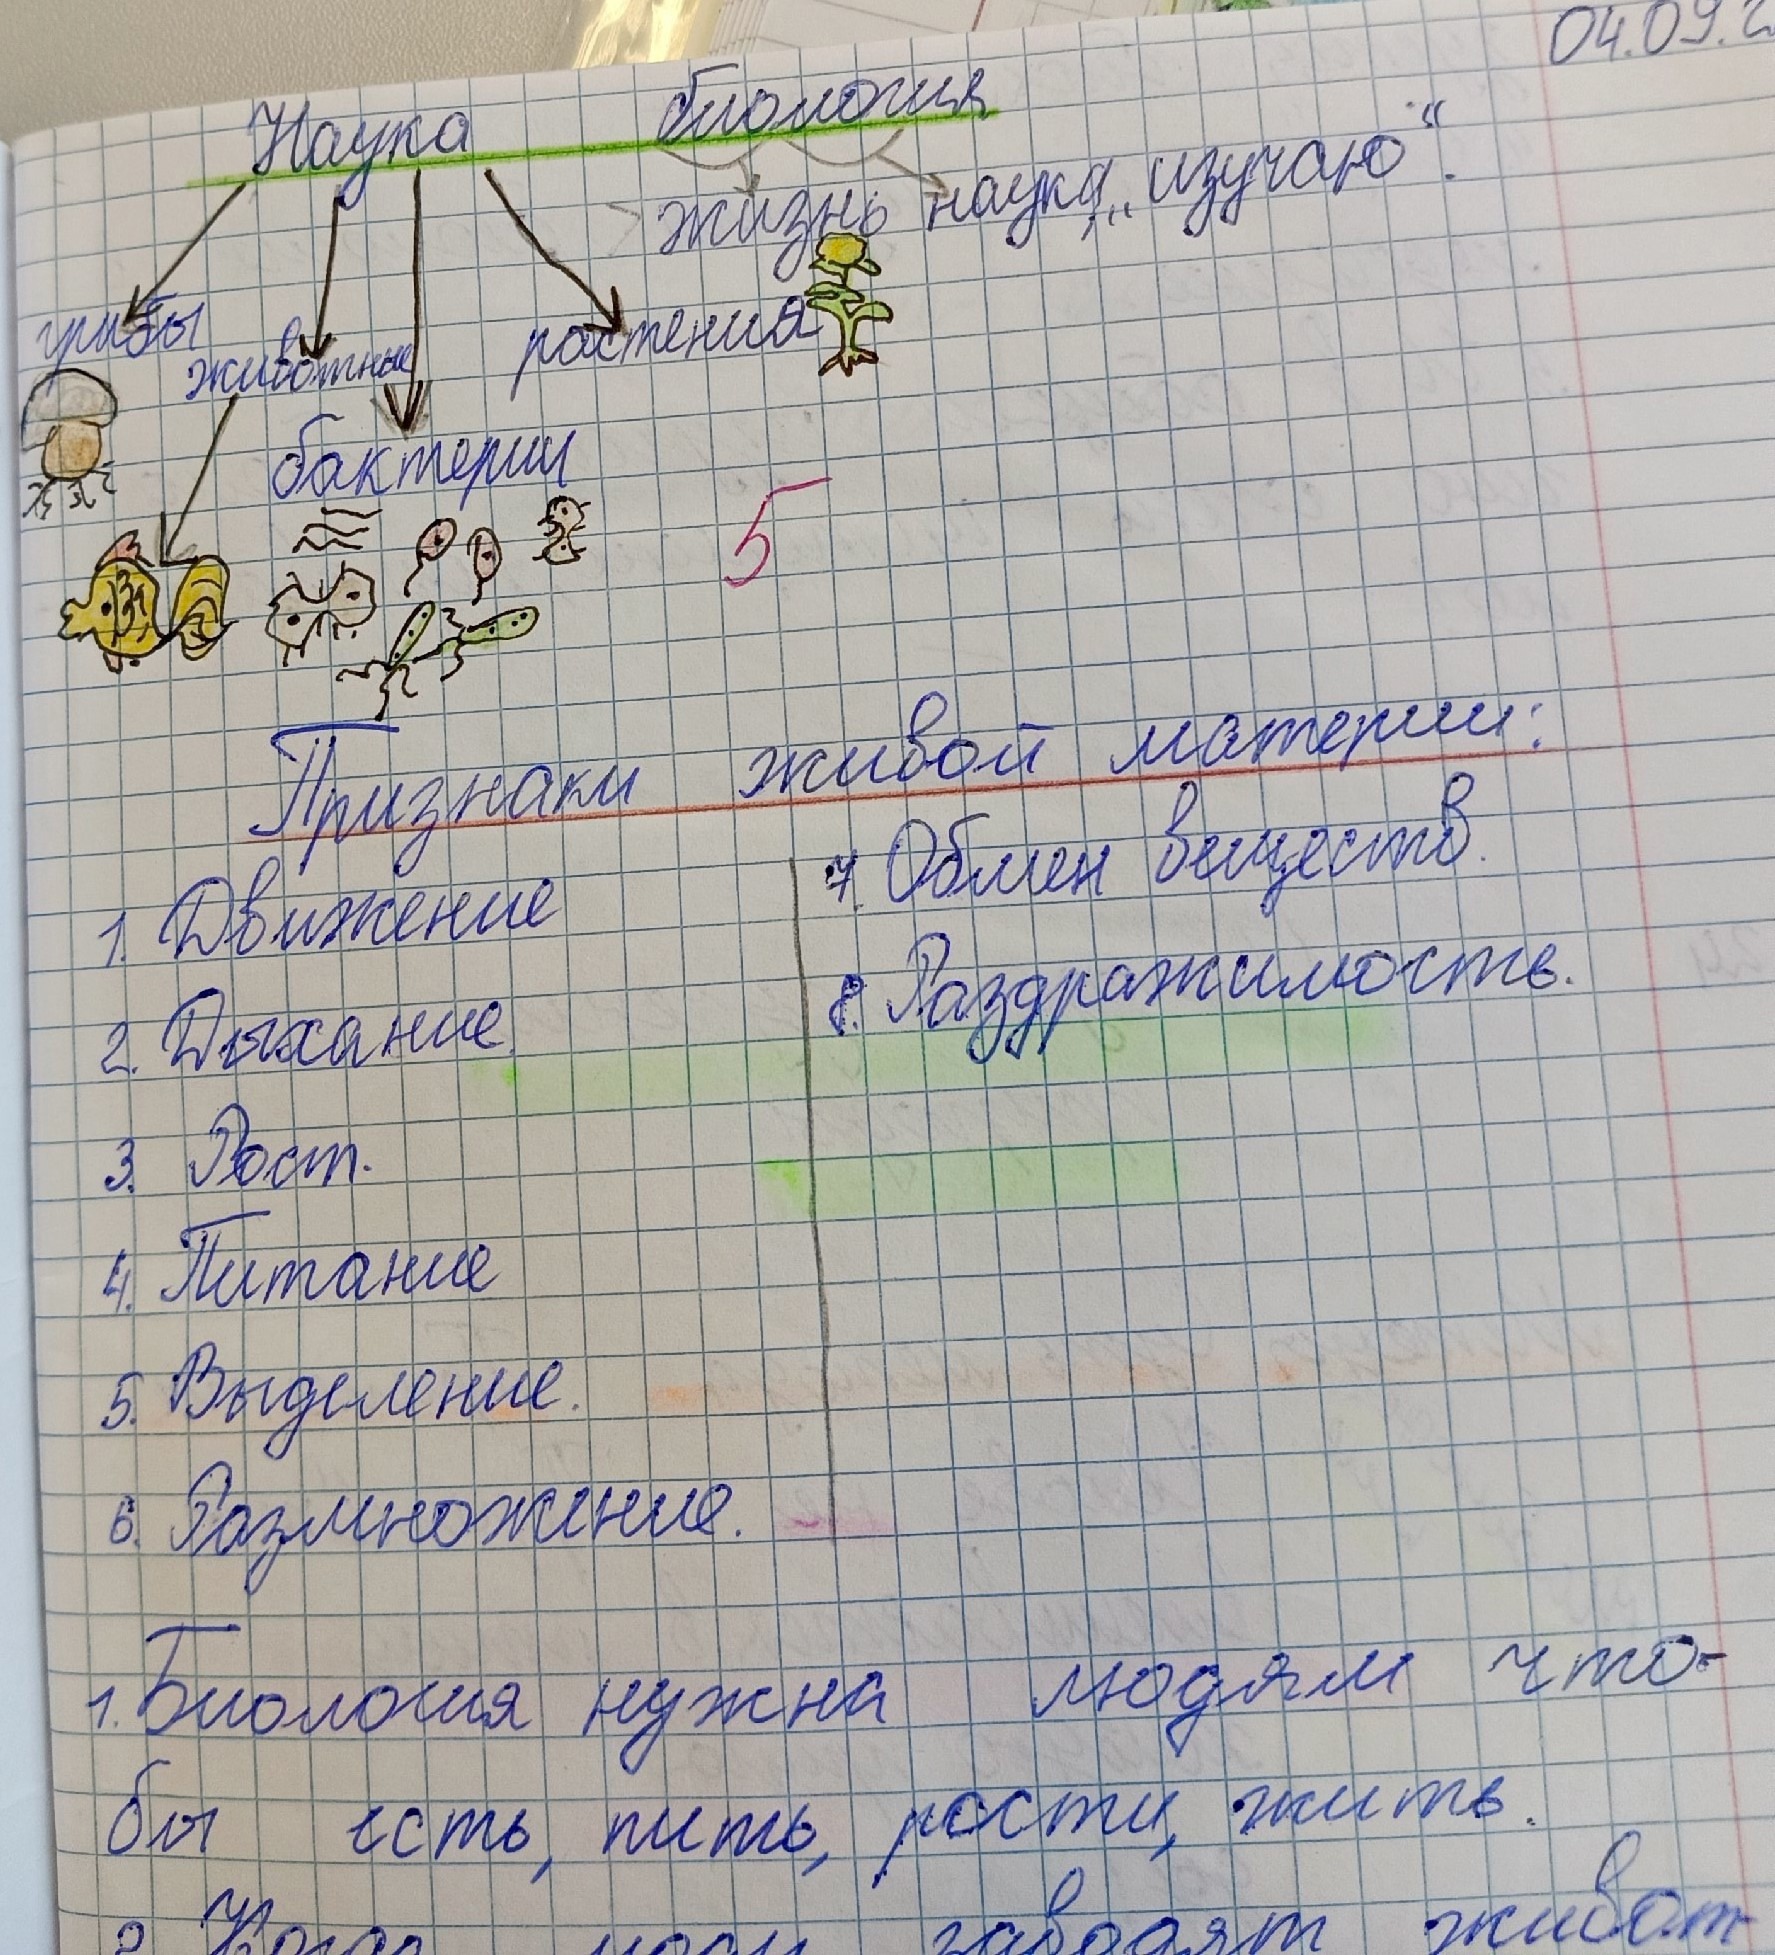 04.09.2
Наука биология
жизнь наука „изучаю“.
грибы
животные
растения
бактерии
5
Признаки живой материи:
1. Движение
2. Дыхание.
3. Рост.
4. Питание
5. Выделение.
6. Размножение.
7. Обмен веществ.
8. Раздражимость.
1. Биология нужна людям что-
бы есть, пить, рости, жить.
2. Когда люди заводят живот